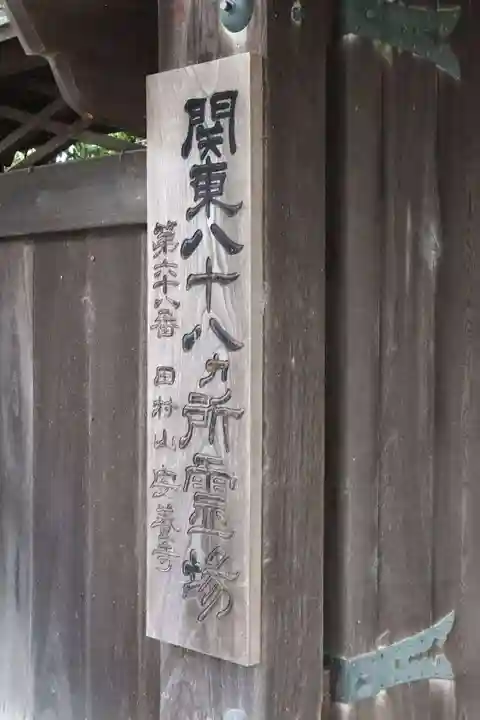 関東八十八ヵ所霊場
第六十八番 田村山安養寺